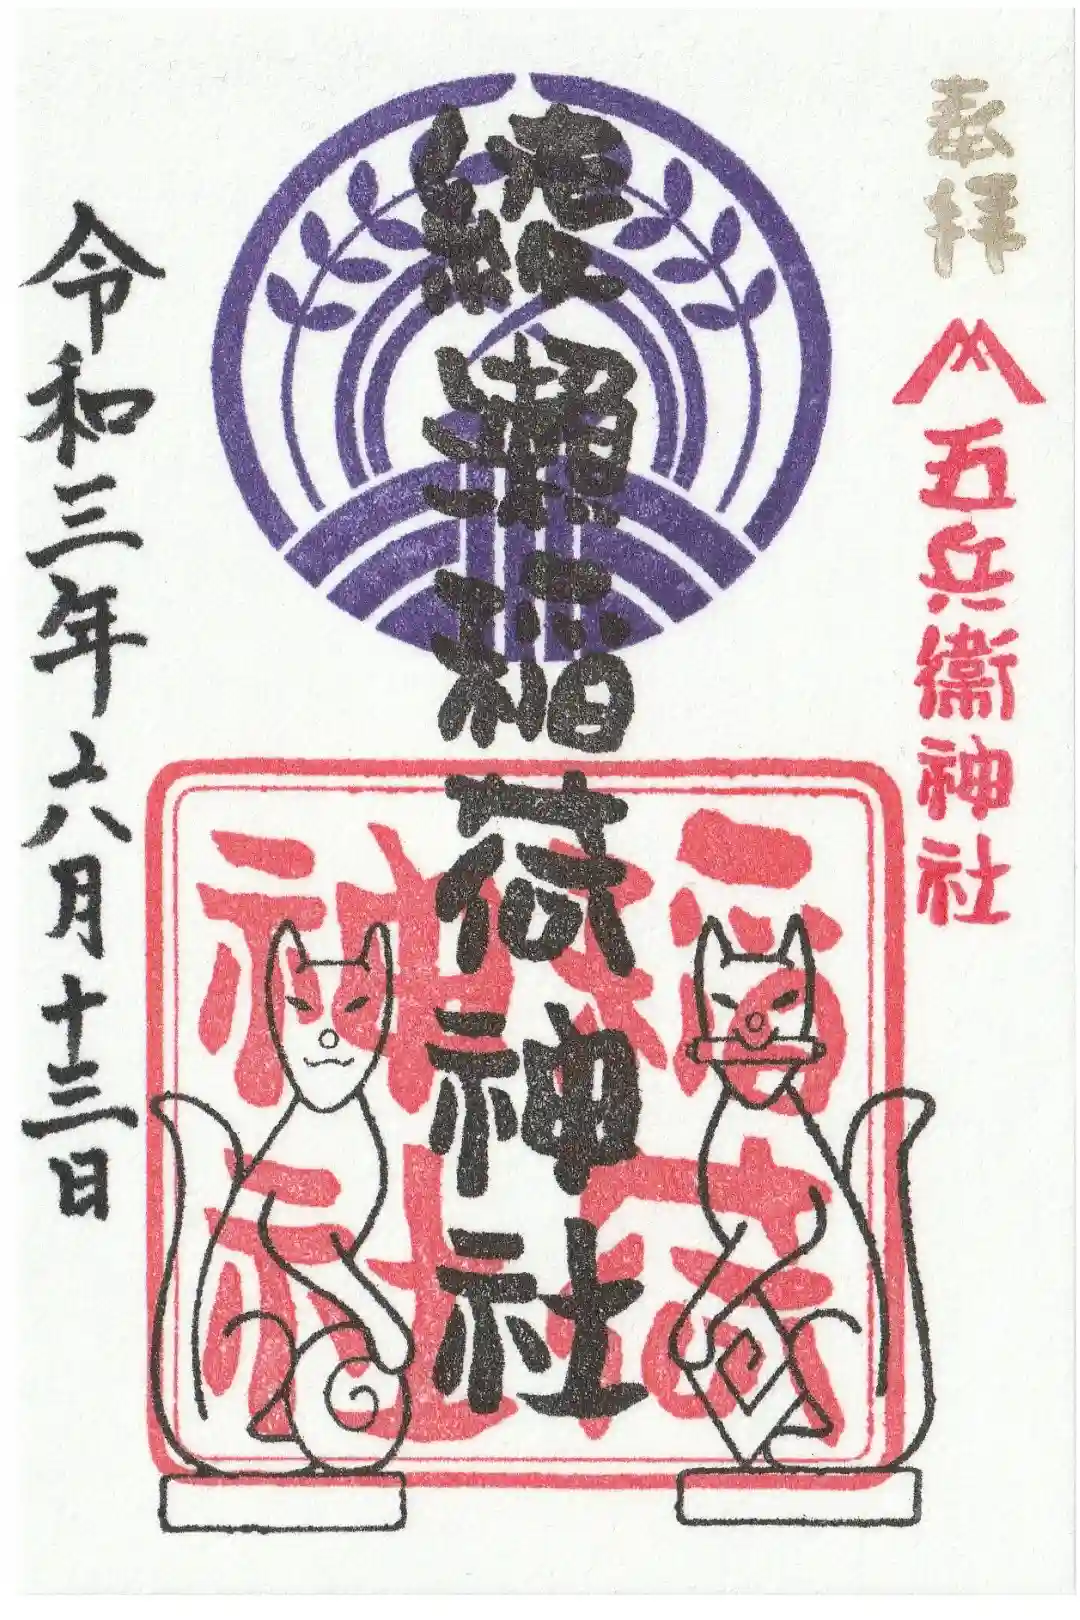 奉拝
五兵衛神社
綾瀬稲荷神社
稲荷
神社
令和三年六月十三日